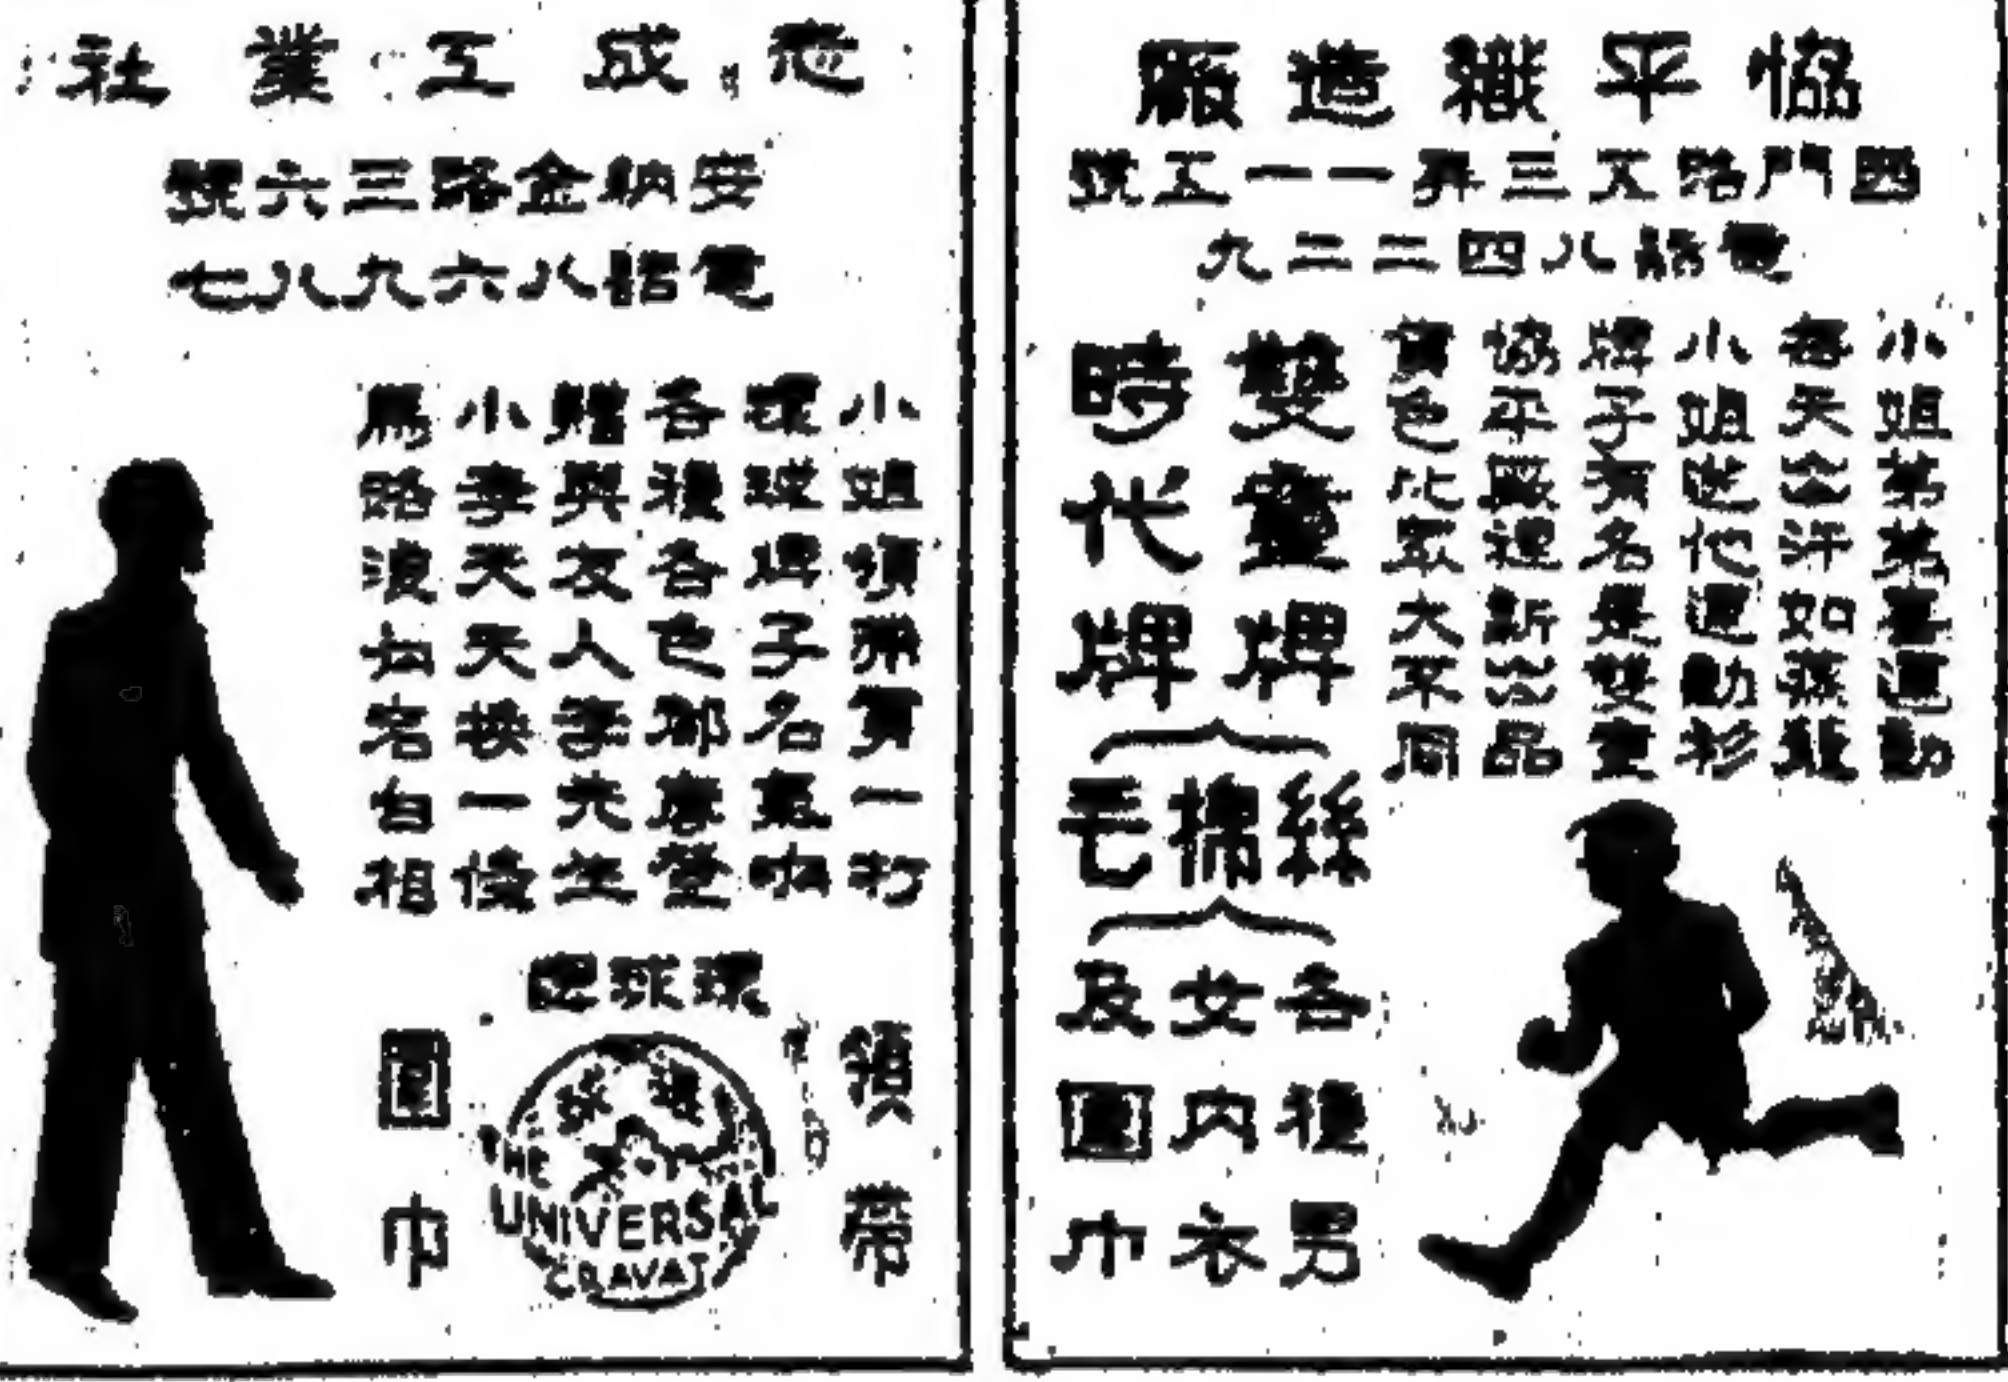 恊平織造廠
西門路五三弄一一五號
電話八四二二九
小姐弟弟喜運動
每天出汗如蒸籠
小姐送他運動衫
牌子有名是雙童
協平廠裡新出品
貨色比眾大不同
雙童牌
時代牌
絲棉毛
各種男
女內衣
及圍巾
志成工業社
安納金路三六號
電話八六九八七
小姐領帶買一打
環球牌子名氣响
各種各色都摩登
贈與友人李先生
小李天天換一條
馬路浪向白相
環球牌
領帶
環球
THE
UNIVERSAL
CRAVAT
圍巾